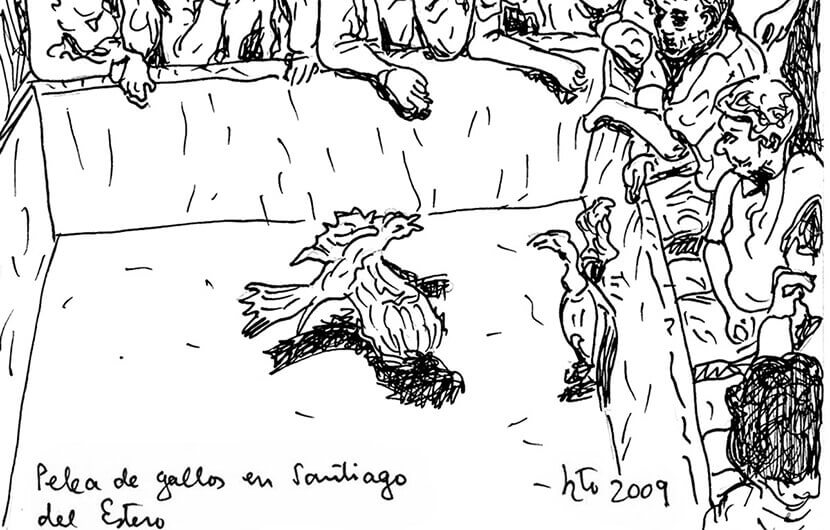 Pelea de gallos en Santiago
del Estero
2009